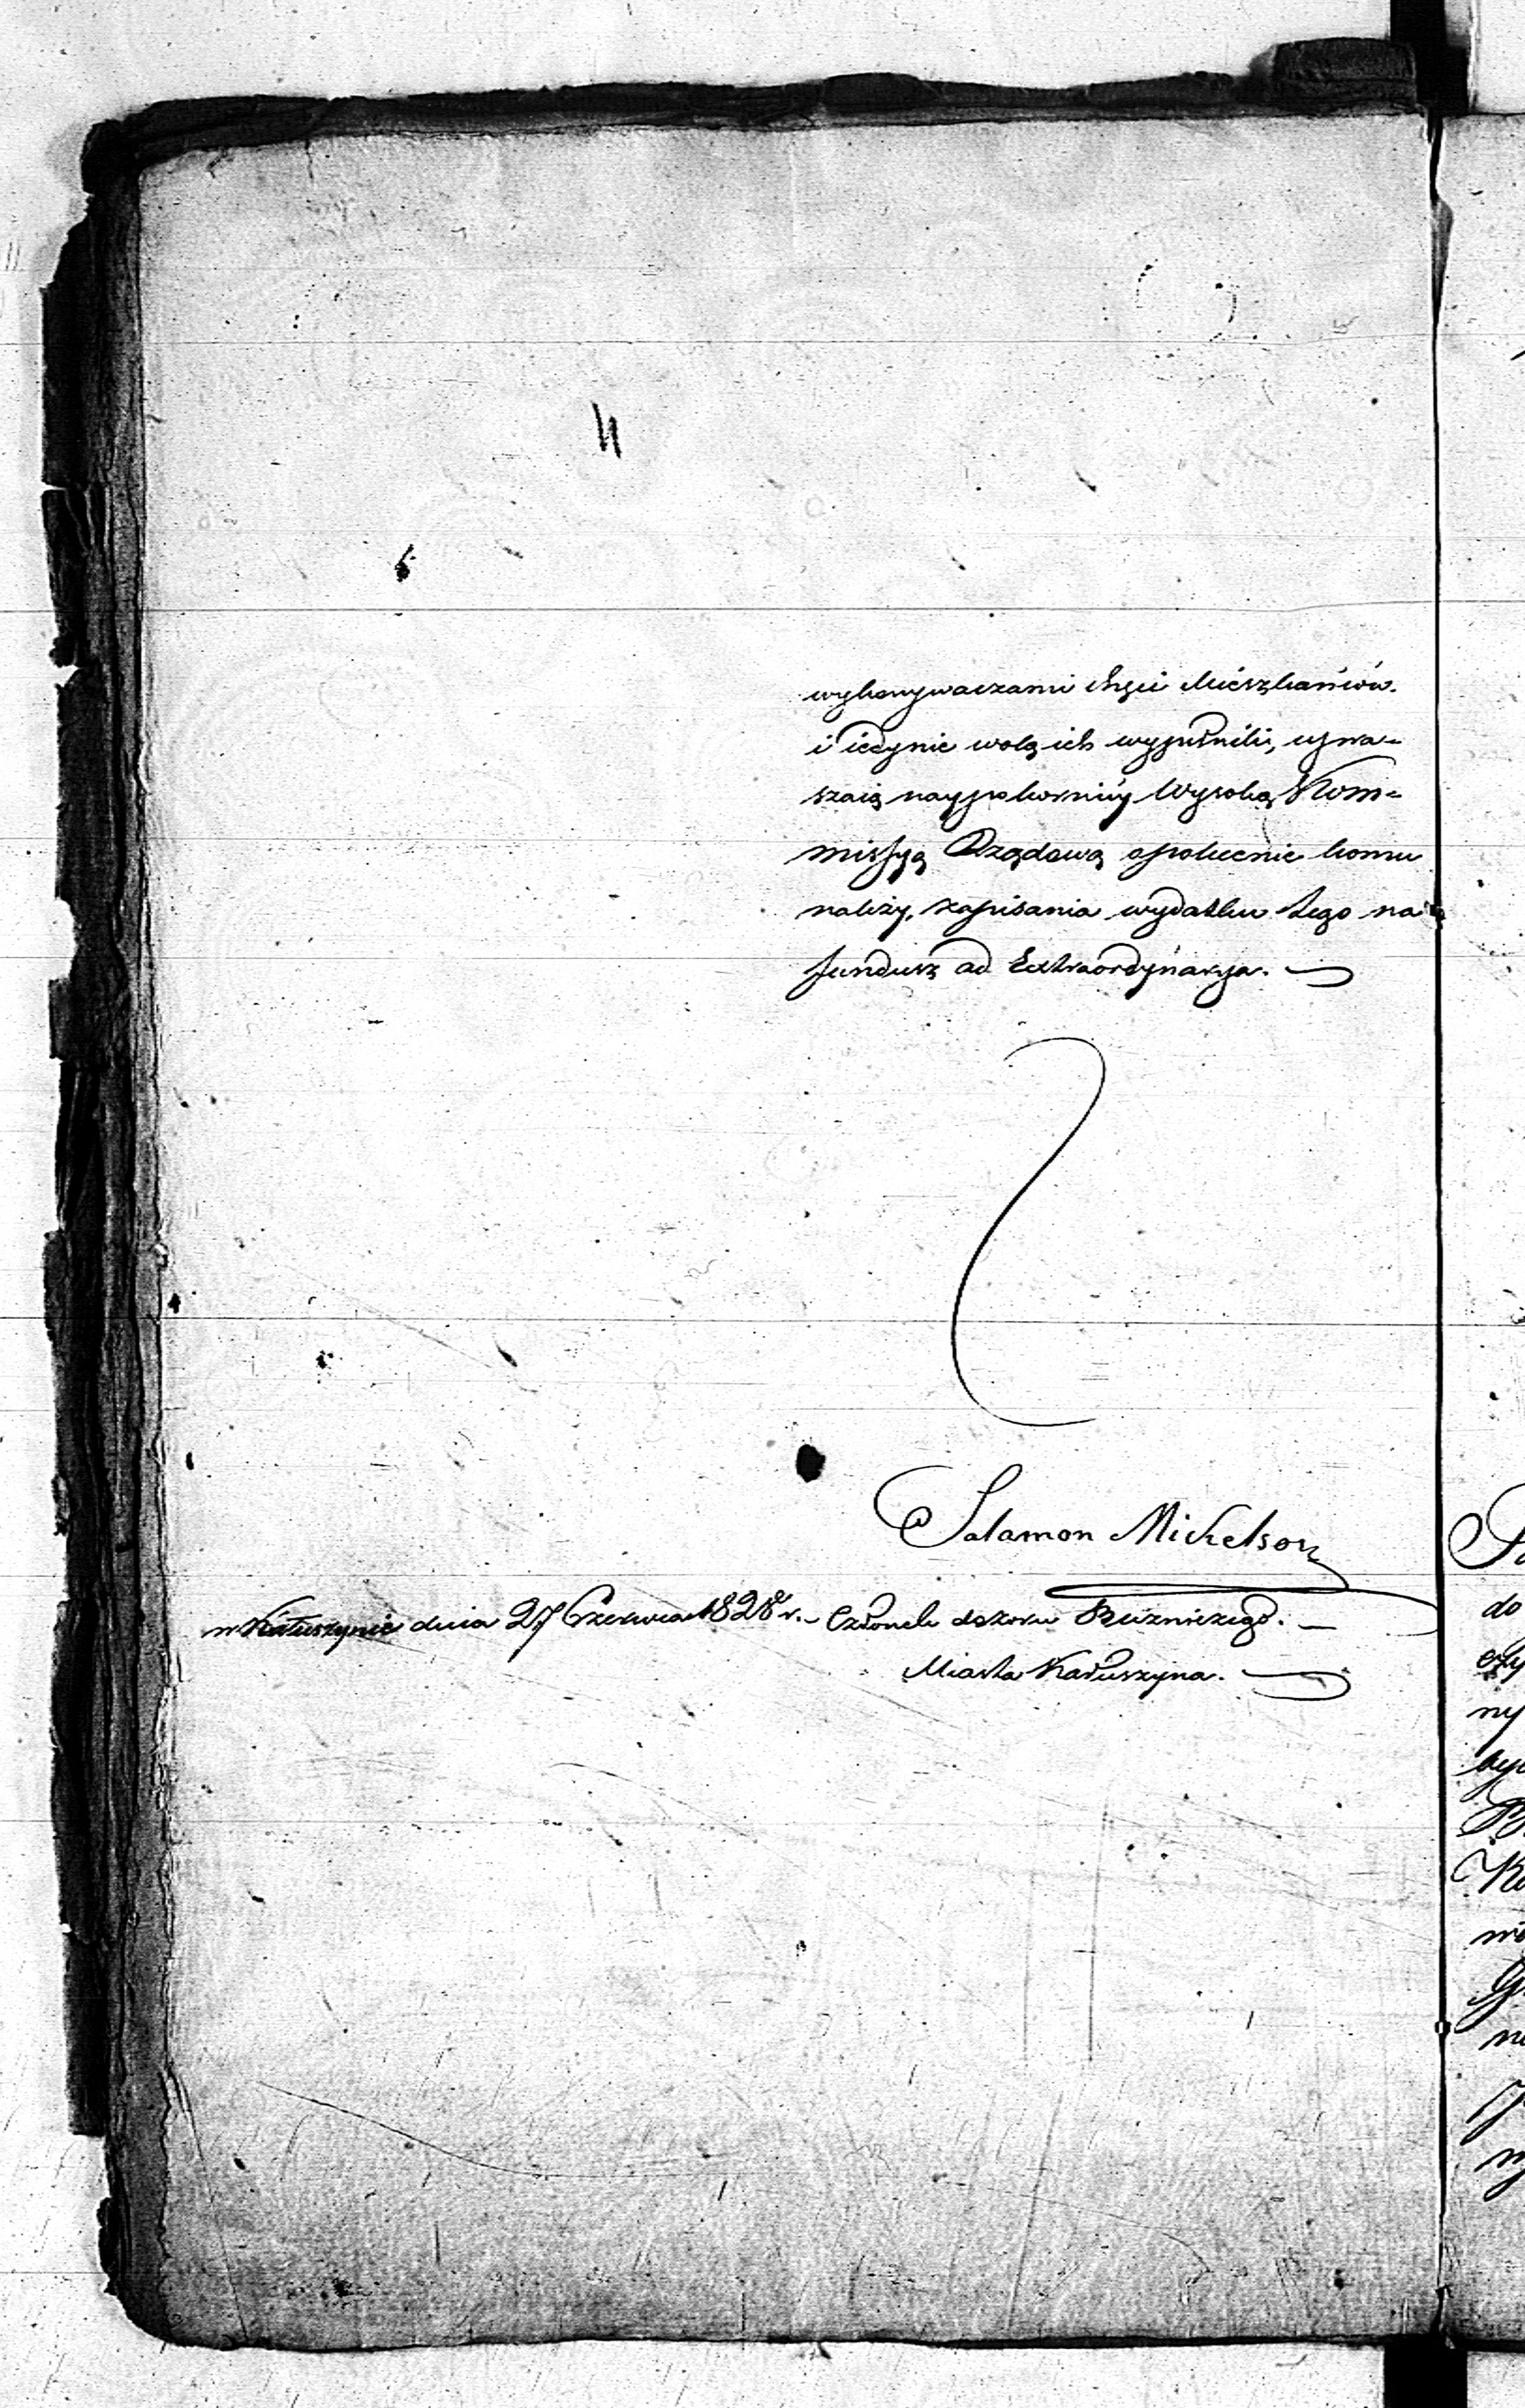 wykonywaczami chęci Mieszkańców.
i iedynie wolą ich wypełnili, upra-
szaią naypokorniéy Wysoką Kom-
missyą Rządową o polecenie komu
należy, zapisania wydatku tego na
fundusz ad Extraordynarya.
Salamon Michelson
w Kałuszynie dnia 27 Czerwca 1828 r. Członek dozoru Bużniczego.
Miasta Kałuszyna.